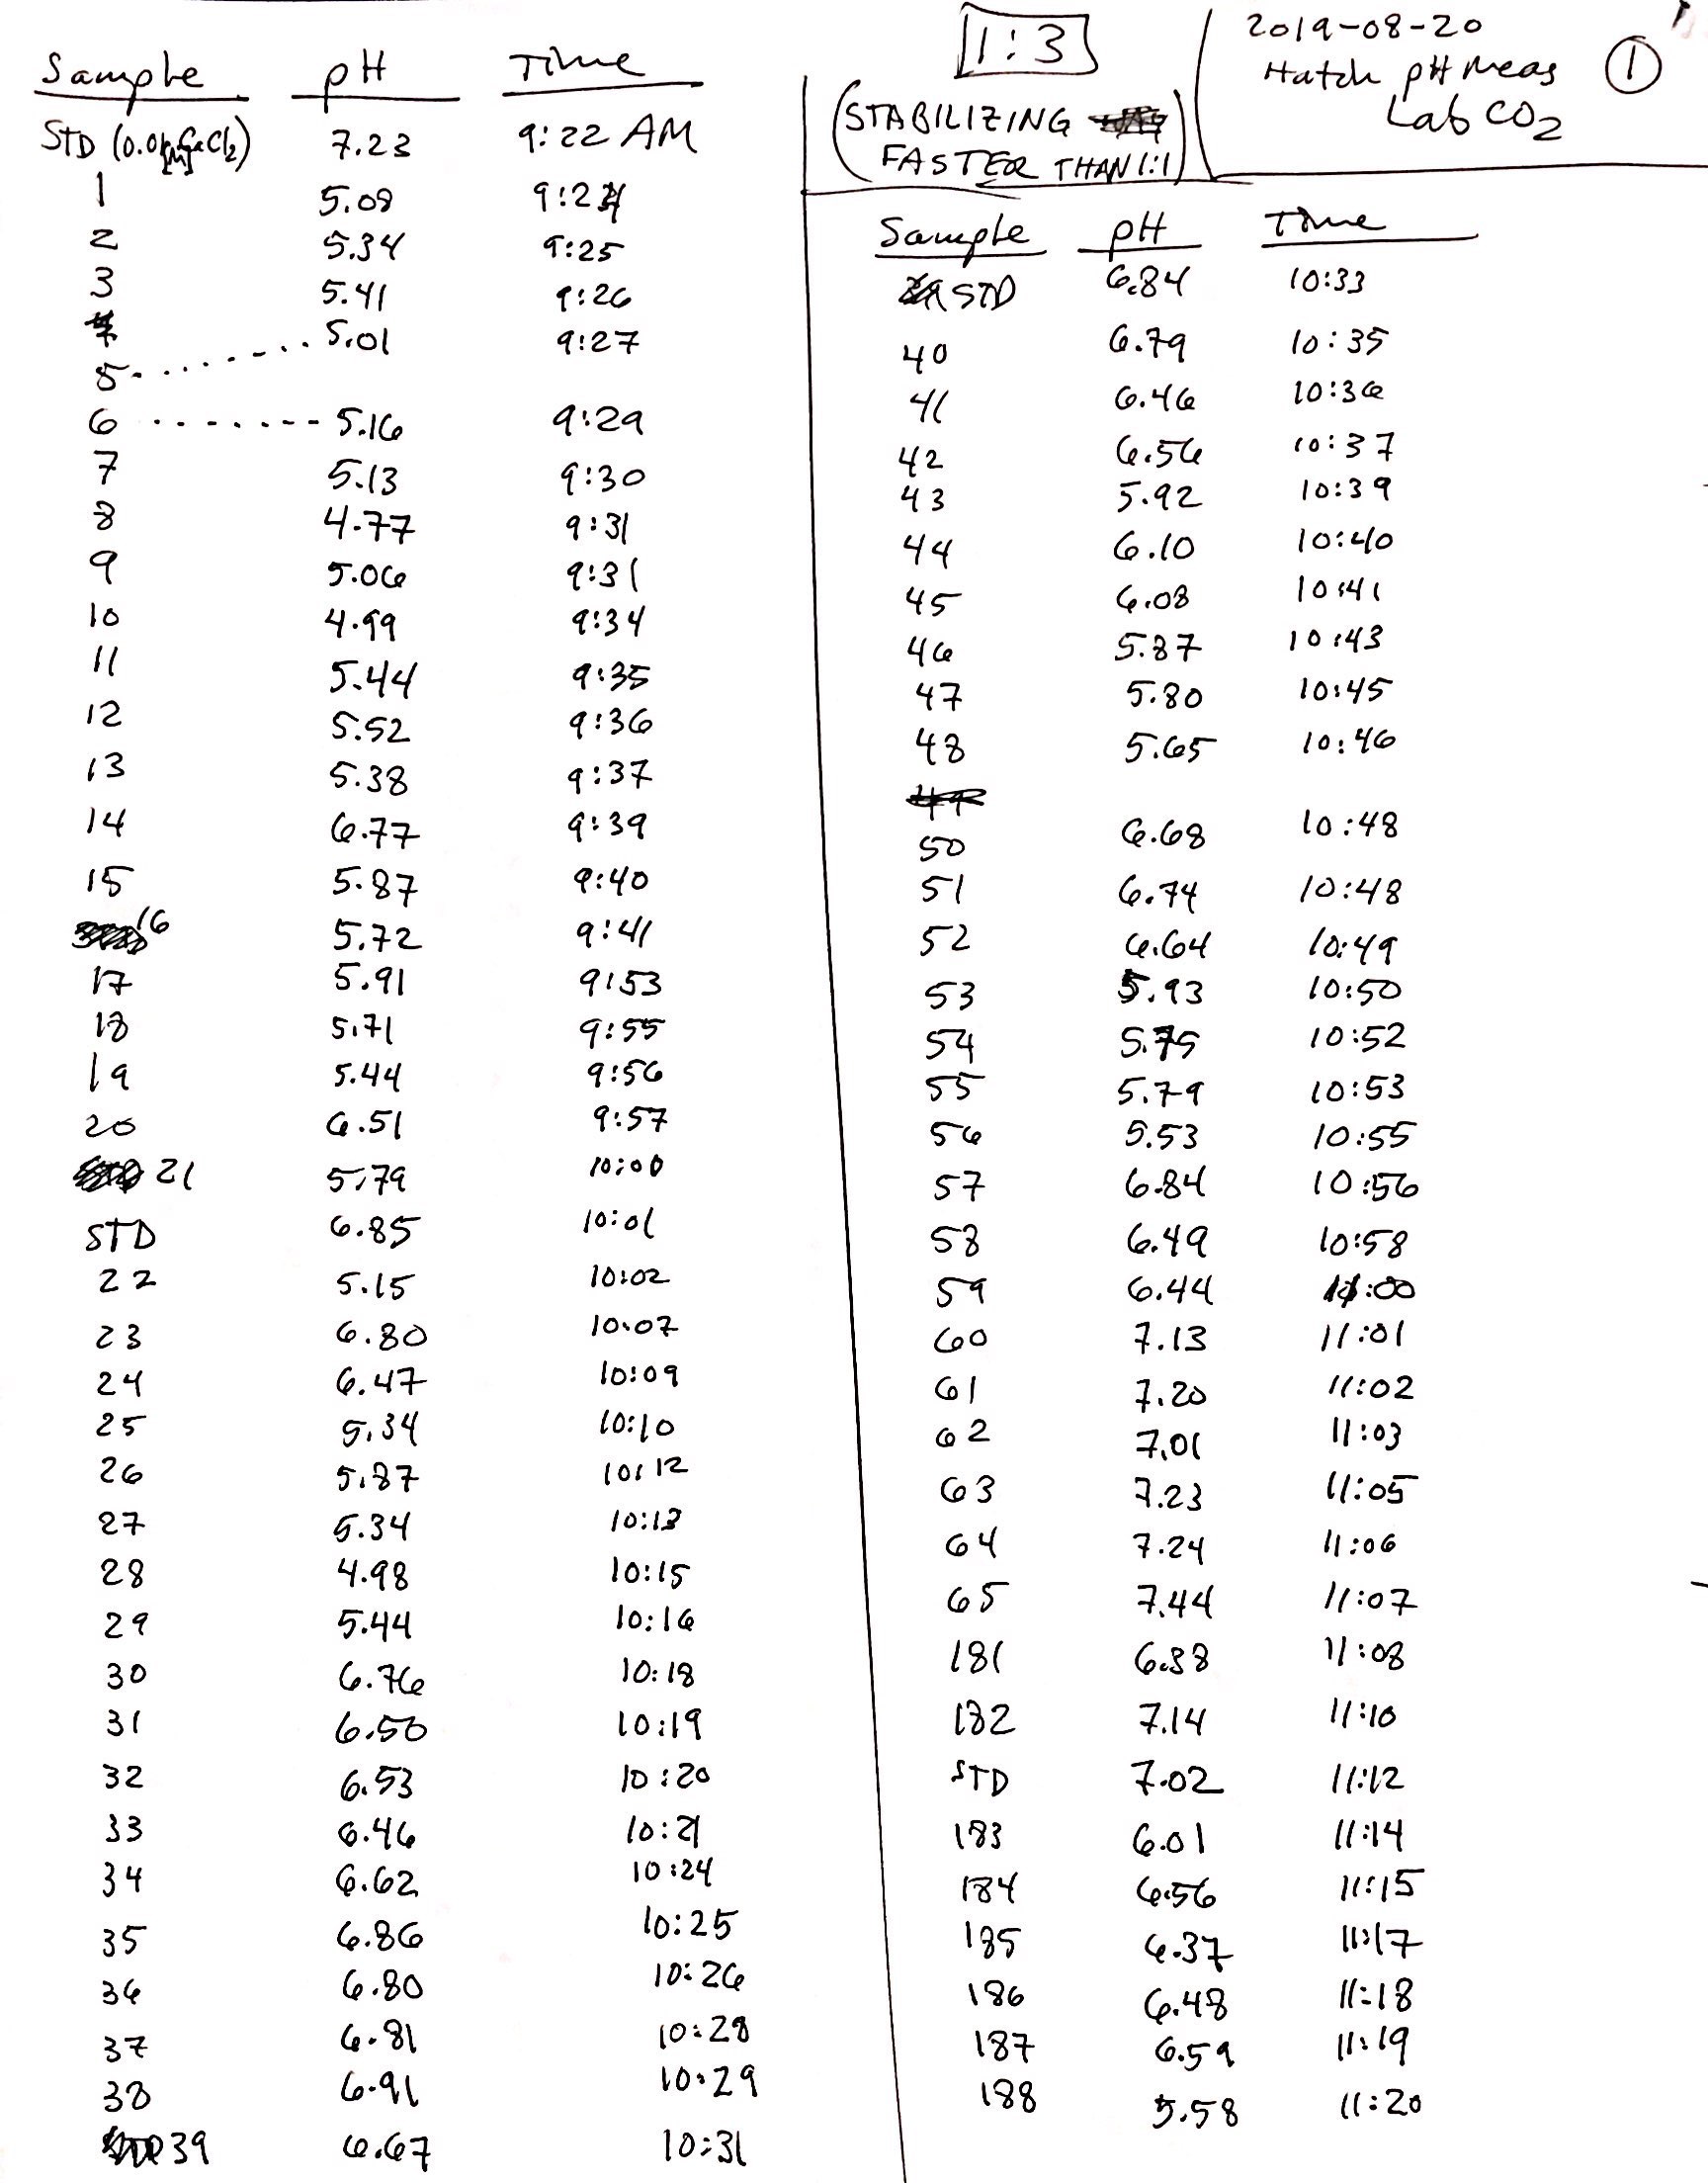 Sample pH Time
STD (0.01[M]CaCl2) 7.23 9:22 AM
1 5.08 9:24
2 5.34 9:25
3 5.41 9:26
5 ........ 5.01 9:27
6 ....... 5.16 9:29
7 5.13 9:30
8 4.77 9:31
9 5.06 9:31
10 4.99 9:34
11 5.44 9:35
12 5.52 9:36
13 5.38 9:37
14 6.77 9:39
15 5.87 9:40
16 5.72 9:41
17 5.91 9:53
18 5.71 9:55
19 5.44 9:56
20 6.51 9:57
21 5.79 10:00
STD 6.85 10:01
22 5.15 10:02
23 6.80 10:07
24 6.47 10:09
25 5.34 10:10
26 5.87 10:12
27 5.34 10:13
28 4.98 10:15
29 5.44 10:16
30 6.76 10:18
31 6.50 10:19
32 6.53 10:20
33 6.46 10:21
34 6.62 10:24
35 6.86 10:25
36 6.80 10:26
37 6.81 10:28
38 6.91 10:29
39 6.67 10:31
1:3
(STABILIZING
FASTER THAN 1:1)
2019-08-20
Hatch pH Meas
Lab CO2
1
Sample pH Time
STD 6.84 10:33
40 6.79 10:35
41 6.46 10:36
42 6.56 10:37
43 5.92 10:39
44 6.10 10:40
45 6.08 10:41
46 5.87 10:43
47 5.80 10:45
48 5.65 10:46
49
50 6.68 10:48
51 6.74 10:48
52 6.64 10:49
53 5.93 10:50
54 5.75 10:52
55 5.79 10:53
56 5.53 10:55
57 6.84 10:56
58 6.49 10:58
59 6.44 11:00
60 7.13 11:01
61 7.20 11:02
62 7.01 11:03
63 7.23 11:05
64 7.24 11:06
65 7.44 11:07
181 6.38 11:08
182 7.14 11:10
STD 7.02 11:12
183 6.01 11:14
184 6.56 11:15
185 6.37 11:17
186 6.48 11:18
187 6.59 11:19
188 5.58 11:20